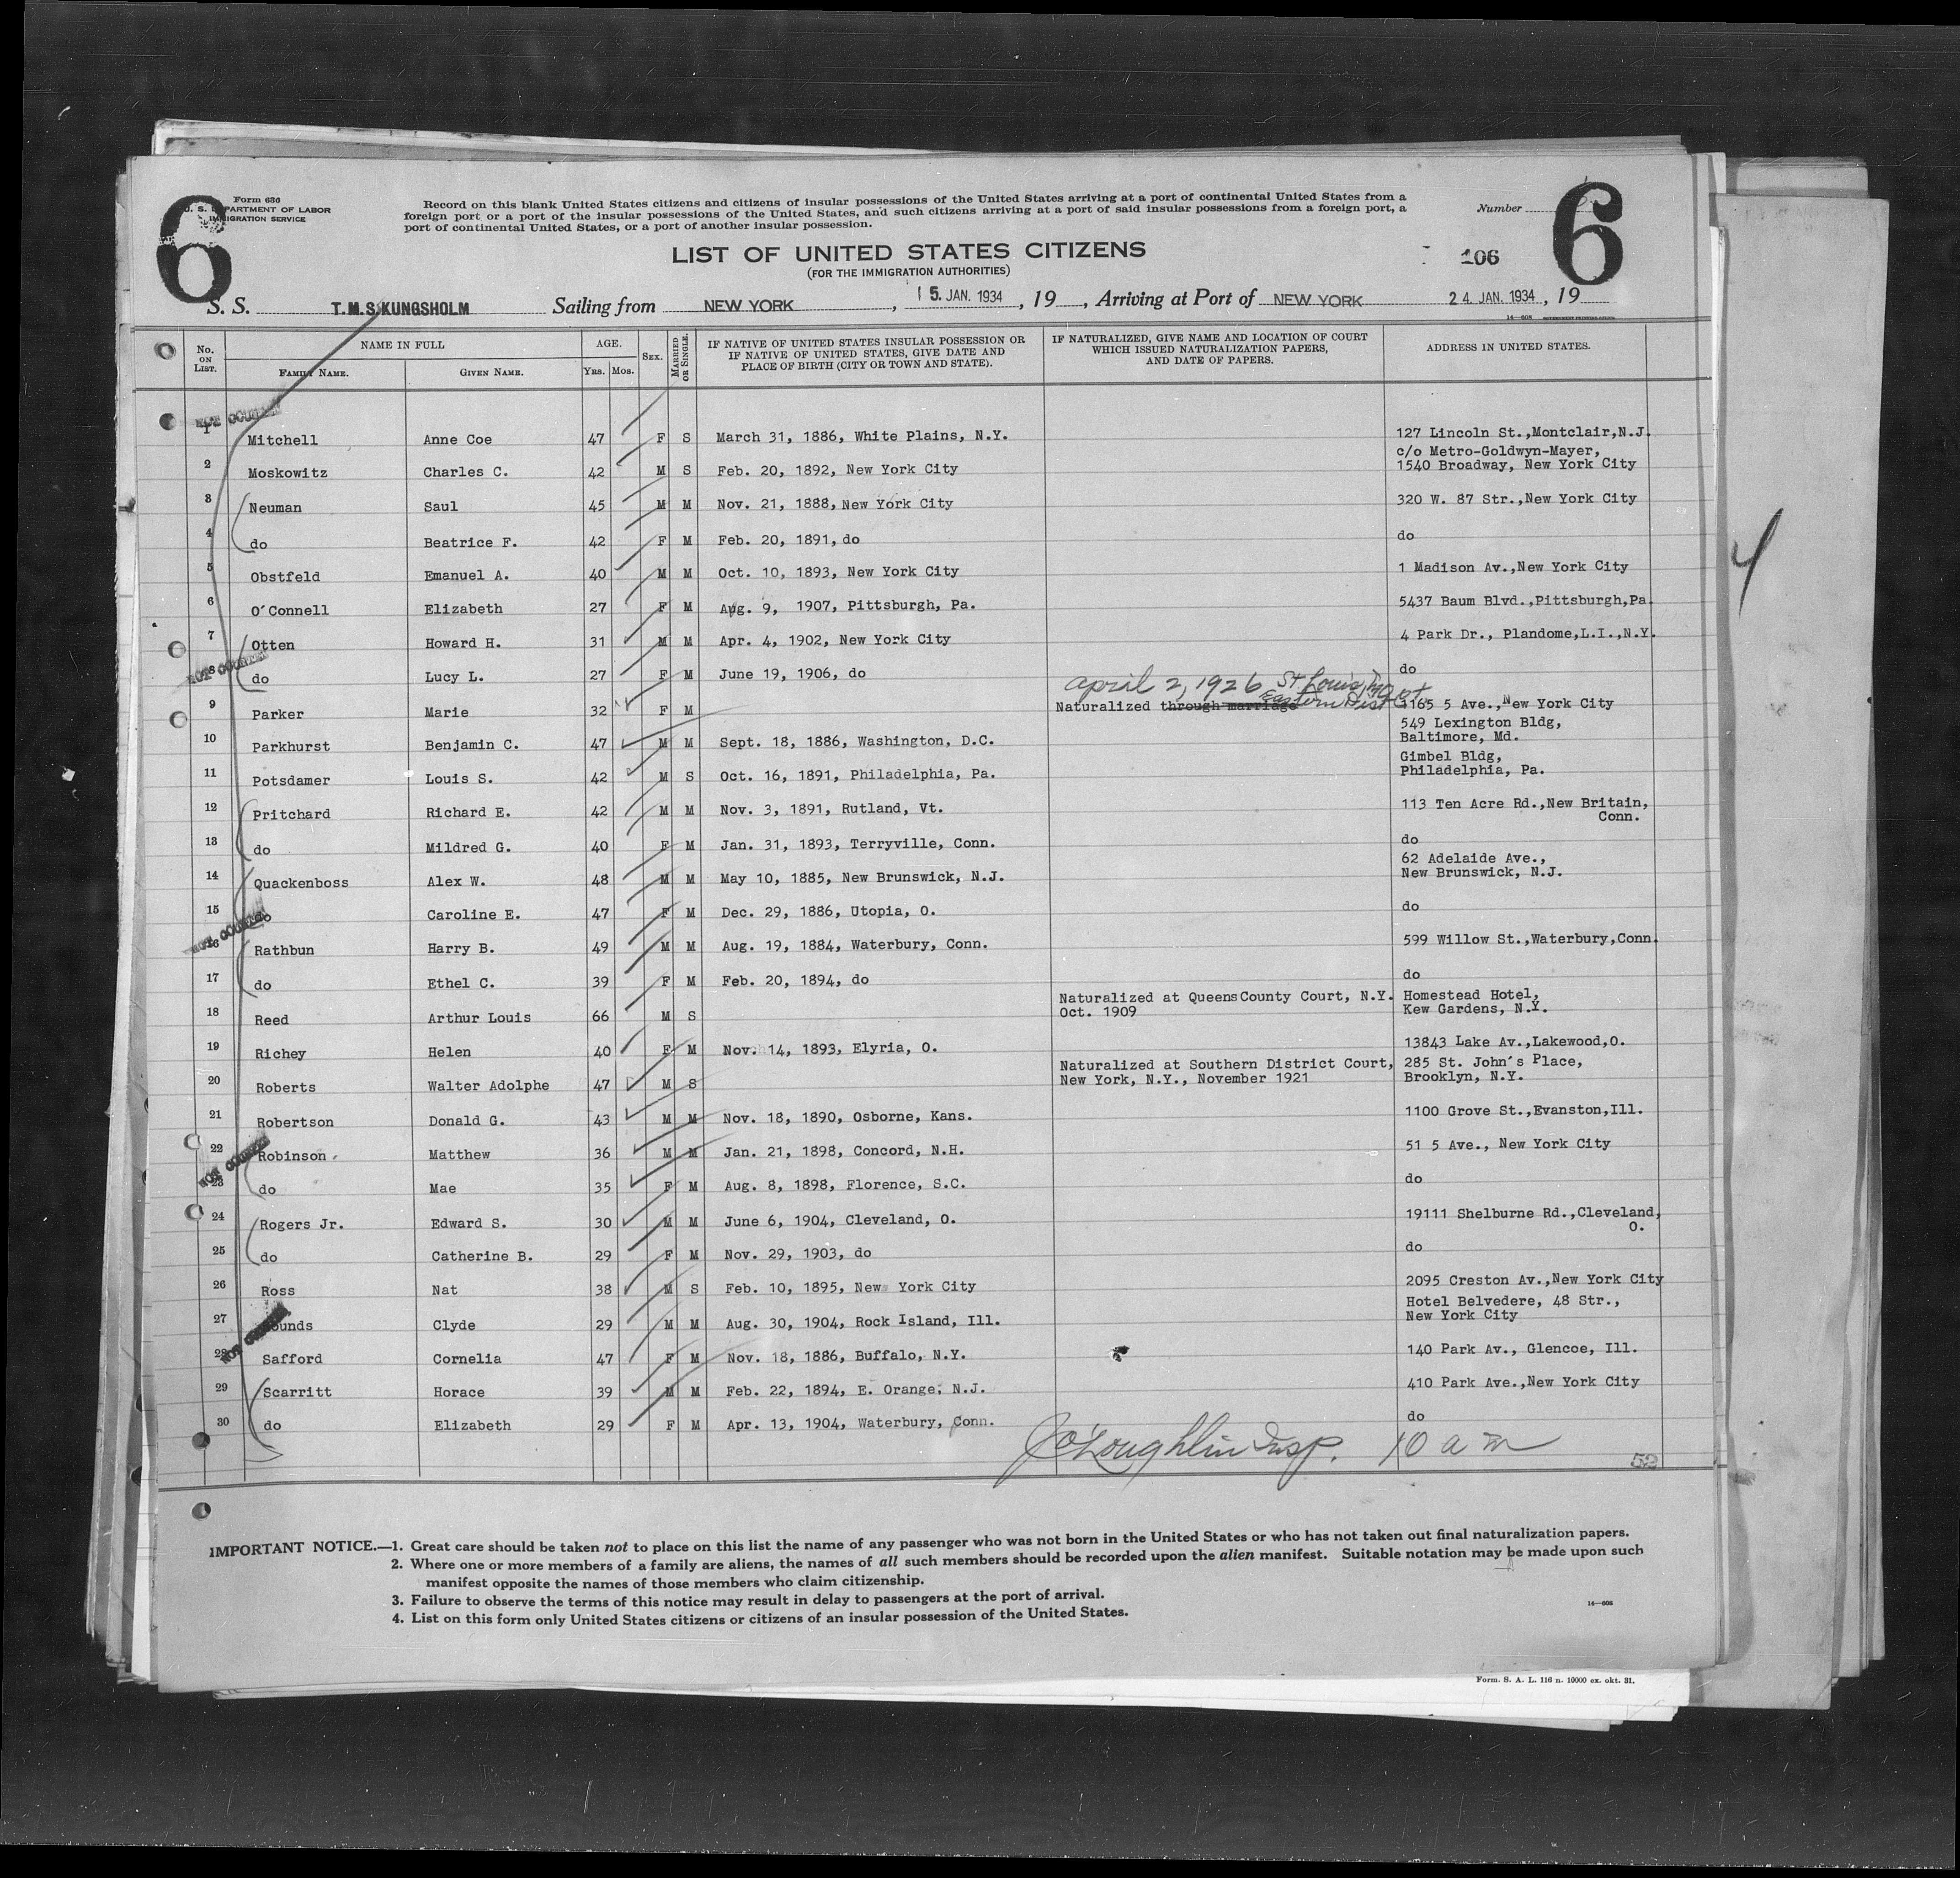 6
Form 630
U. S. DEPARTMENT OF LABOR
IMMIGRATION SERVICE
Record on this blank United States citizens and citizens of insular possessions of the United States arriving at a port of continental United States from a
foreign port or a port of the insular possessions of the United States, and such citizens arriving at a port of said insular possessions from a foreign port, a
port of continental United States, or a port of another insular possession.
Number
6
LIST OF UNITED STATES CITIZENS
(FOR THE IMMIGRATION AUTHORITIES)
106
S. S. T.M.S KUNGSHOLM Sailing from NEW YORK, 15. JAN. 1934, 19, Arriving at Port of NEW YORK 24. JAN. 1934, 19
No. ON LIST. NAME IN FULL FAMILY NAME. GIVEN NAME. AGE. YRS. MOS. SEX. MARRIED OR SINGLE. IF NATIVE OF UNITED STATES INSULAR POSSESSION OR IF NATIVE OF UNITED STATES, GIVE DATE AND PLACE OF BIRTH (CITY OR TOWN AND STATE). IF NATURALIZED, GIVE NAME AND LOCATION OF COURT WHICH ISSUED NATURALIZATION PAPERS, AND DATE OF PAPERS. ADDRESS IN UNITED STATES.
NOT COUNTED
1 Mitchell Anne Coe 47 F S March 31, 1886, White Plains, N.Y. 127 Lincoln St.,Montclair,N.J.
2 Moskowitz Charles C. 42 M S Feb. 20, 1892, New York City c/o Metro-Goldwyn-Mayer, 1540 Broadway, New York City
3 Neuman Saul 45 M M Nov. 21, 1888, New York City 320 W. 87 Str.,New York City
4 do Beatrice F. 42 F M Feb. 20, 1891, do do
5 Obstfeld Emanuel A. 40 M M Oct. 10, 1893, New York City 1 Madison Av.,New York City
6 O'Connell Elizabeth 27 F M Aug. 9, 1907, Pittsburgh, Pa. 5437 Baum Blvd.,Pittsburgh,Pa.
7 Otten Howard H. 31 M M Apr. 4, 1902, New York City 4 Park Dr., Plandome,L.I.,N.Y.
NOT COUNTED
8 do Lucy L. 27 F M June 19, 1906, do do
April 2, 1926 St Louis
Eastern Dist
9 Parker Marie 32 F M Naturalized through marriage 1165 5 Ave.,New York City
10 Parkhurst Benjamin C. 47 M M Sept. 18, 1886, Washington, D.C. 549 Lexington Bldg, Baltimore, Md.
11 Potsdamer Louis S. 42 M S Oct. 16, 1891, Philadelphia, Pa. Gimbel Bldg, Philadelphia, Pa.
12 Pritchard Richard E. 42 M M Nov. 3, 1891, Rutland, Vt. 113 Ten Acre Rd.,New Britain, Conn.
13 do Mildred G. 40 F M Jan. 31, 1893, Terryville, Conn. do
14 Quackenboss Alex W. 48 M M May 10, 1885, New Brunswick, N.J. 62 Adelaide Ave., New Brunswick, N.J.
15 do Caroline E. 47 F M Dec. 29, 1886, Utopia, O. do
NOT COUNTED
16 Rathbun Harry B. 49 M M Aug. 19, 1884, Waterbury, Conn. 599 Willow St.,Waterbury,Conn.
17 do Ethel C. 39 F M Feb. 20, 1894, do do
18 Reed Arthur Louis 66 M S Naturalized at Queens County Court, N.Y. Oct. 1909 Homestead Hotel, Kew Gardens, N.Y.
19 Richey Helen 40 F M Nov. 14, 1893, Elyria, O. 13843 Lake Av.,Lakewood,O.
20 Roberts Walter Adolphe 47 M S Naturalized at Southern District Court, New York, N.Y., November 1921 285 St. John's Place, Brooklyn, N.Y.
21 Robertson Donald G. 43 M M Nov. 18, 1890, Osborne, Kans. 1100 Grove St.,Evanston,Ill.
22 Robinson Matthew 36 M M Jan. 21, 1898, Concord, N.H. 51 5 Ave., New York City
NOT COUNTED
23 do Mae 35 F M Aug. 8, 1898, Florence, S.C. do
24 Rogers Jr. Edward S. 30 M M June 6, 1904, Cleveland, O. 19111 Shelburne Rd.,Cleveland, O.
25 do Catherine B. 29 F M Nov. 29, 1903, do do
26 Ross Nat 38 M S Feb. 10, 1895, New York City 2095 Creston Av.,New York City
27 Clyde 29 M M Aug. 30, 1904, Rock Island, Ill. Hotel Belvedere, 48 Str., New York City
NOT COUNTED
28 Safford Cornelia 47 F M Nov. 18, 1886, Buffalo, N.Y. 140 Park Av., Glencoe, Ill.
29 Scarritt Horace 39 M M Feb. 22, 1894, E. Orange, N.J. 410 Park Ave.,New York City
30 do Elizabeth 29 F M Apr. 13, 1904, Waterbury, Conn. do
J O'Loughlin Insp. 10 a m
52
IMPORTANT NOTICE.—1. Great care should be taken not to place on this list the name of any passenger who was not born in the United States or who has not taken out final naturalization papers.
2. Where one or more members of a family are aliens, the names of all such members should be recorded upon the alien manifest. Suitable notation may be made upon such
manifest opposite the names of those members who claim citizenship.
3. Failure to observe the terms of this notice may result in delay to passengers at the port of arrival.
4. List on this form only United States citizens or citizens of an insular possession of the United States.
Form. S. A. L. 116 n. 10000 ex. okt. 31.
4